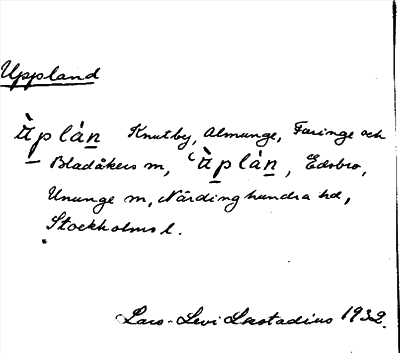 Uppland
ä̀plàn Knutby, Almunge, Faringe och
Bladåkers m, ä̀plàn, Edsbro,
Ununge m, Närdinghundra hd,
Stockholms l.
Lars-Levi Læstadius 1932.